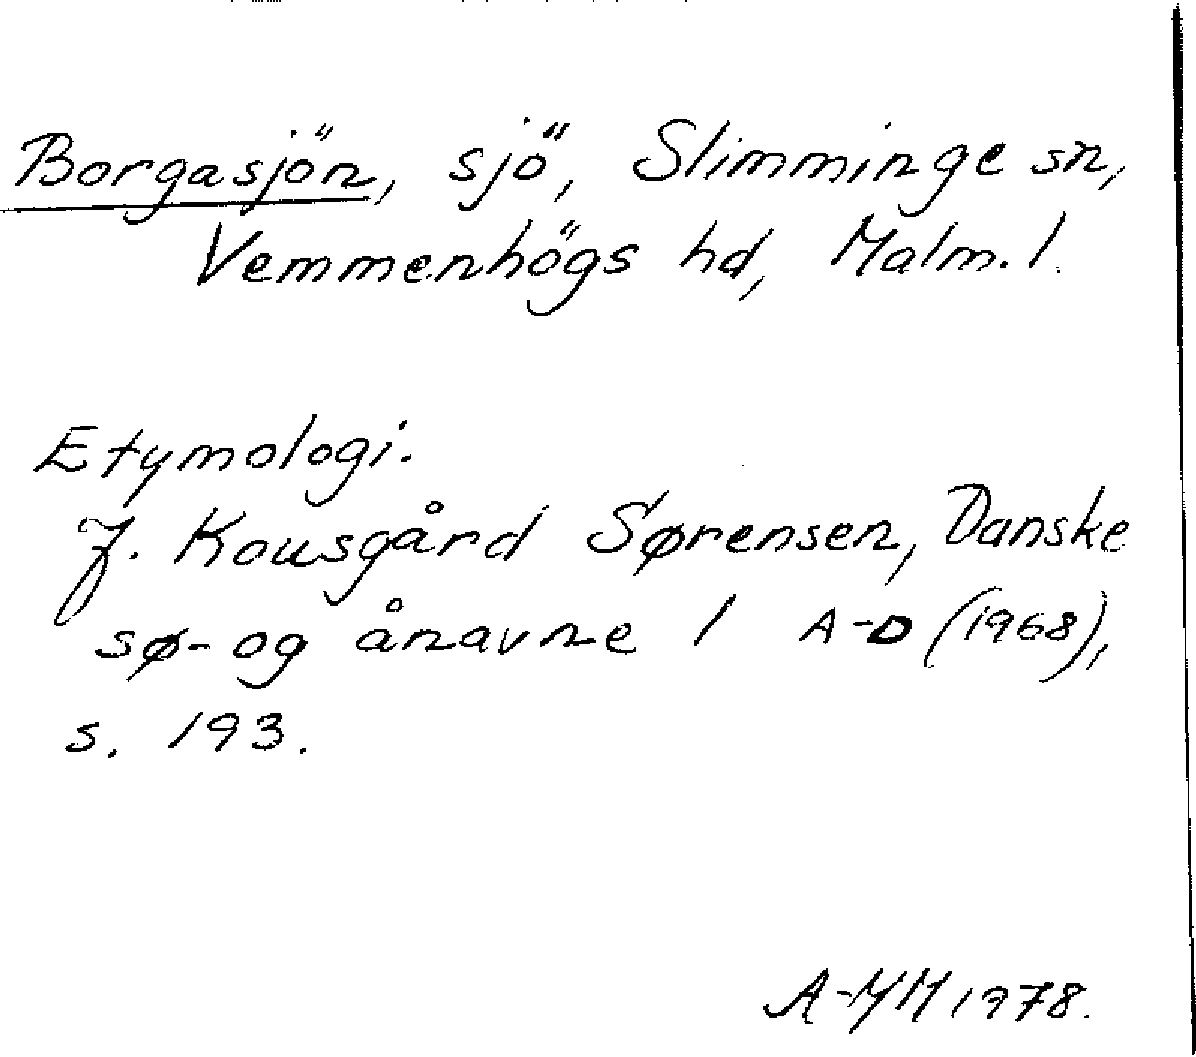 Borgasjön, sjö, Slimminge sn,
Vemmenhögs hd, Malm. l.
Etymologi.
J. Kousgård Sørensen, Danske
sø- og ånavne 1 A-D (1968),
s. 193.
A-MH 1978.